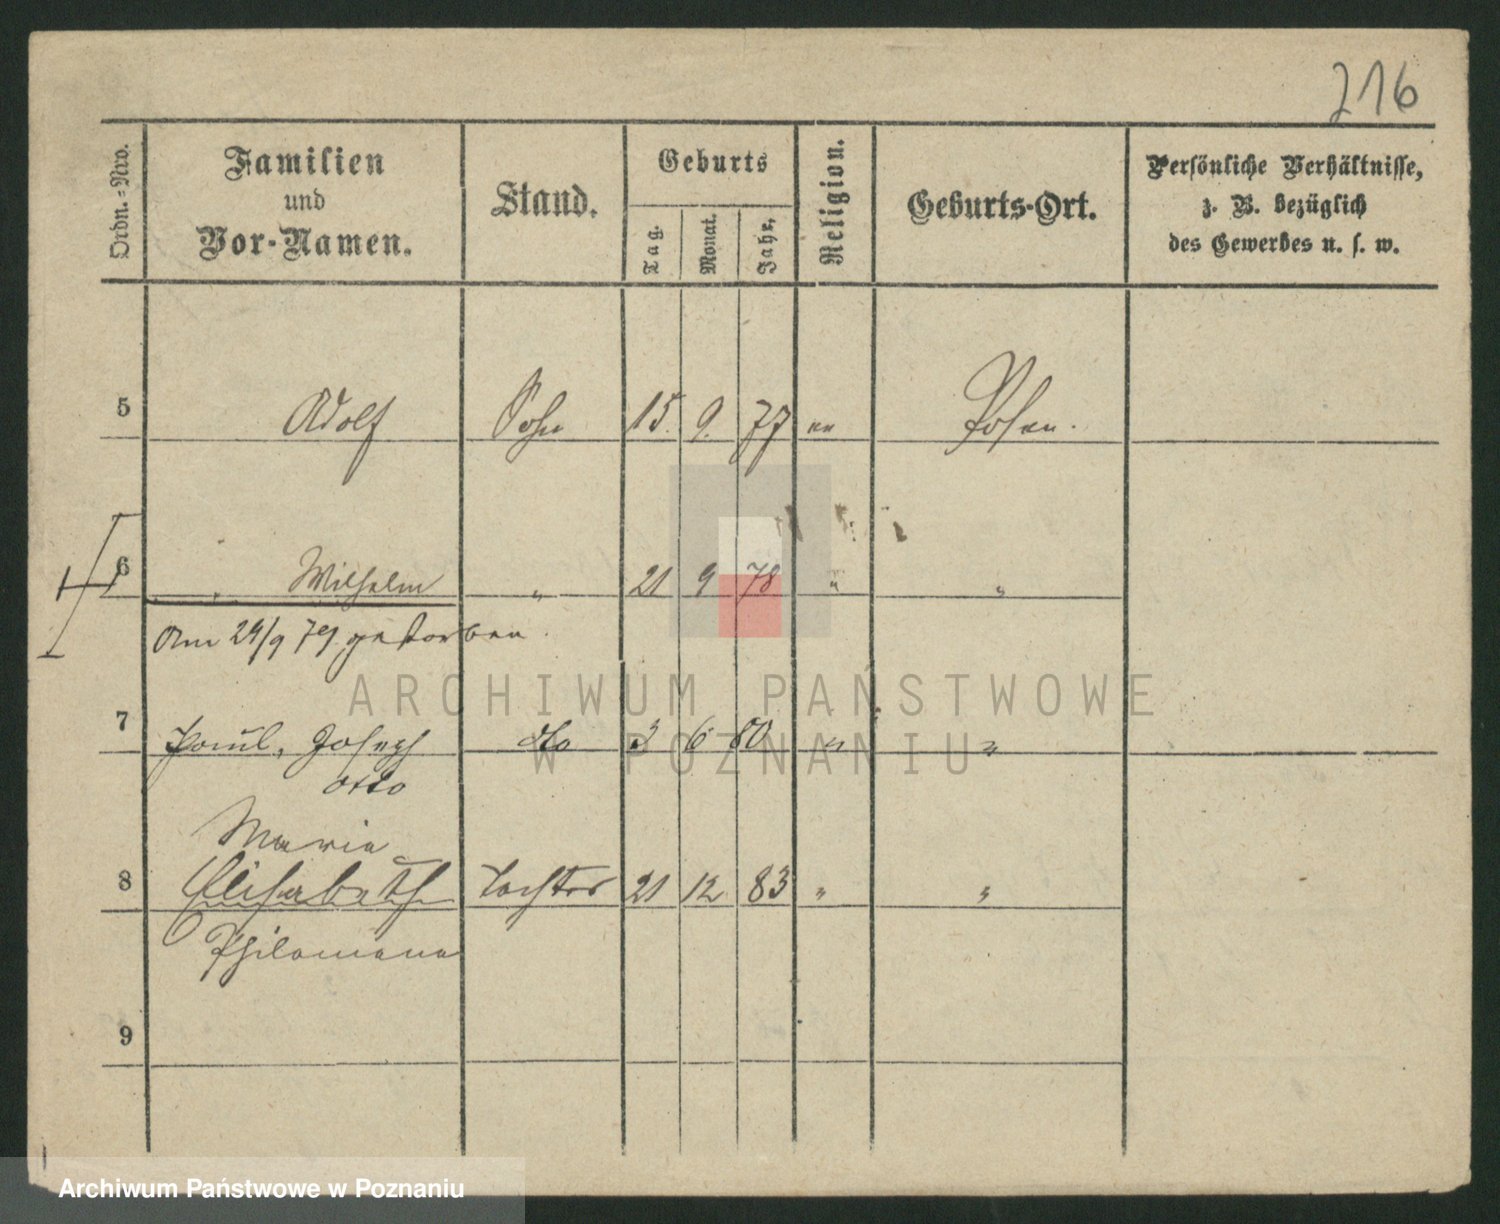 216
Ordn.-Nro.
Familien
und
Vor-Namen.
Stand.
Geburts
Tag.
Monat.
Jahr.
Religion.
Geburts-Ort.
Persönliche Verhältnisse,
z. B. bezüglich
des Gewerbes u. s. w.
5 Adolf Sohn 15. 9. 77 " Posen.
6 " Wilhelm " 21 9 78 " "
Am 24/9 79 gestorben.
7 Paul, Joseph do 3 6 80 " "
Otto
Maria
8 Elisabeth Tochter 21 12 83 " "
Philomena
9
ARCHIWUM PAŃSTWOWE
W POZNANIU
Archiwum Państwowe w Poznaniu